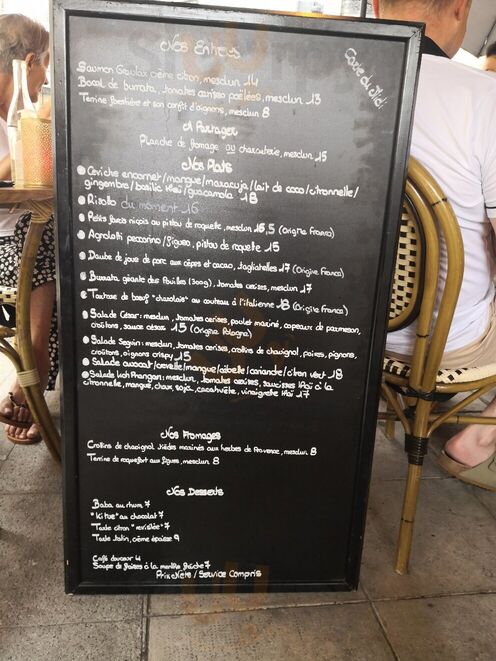 Nos Entrées
Carte du Midi
Saumon Gravlax, crème citron, mesclun 14
Bocal de burrata, tomates cerises poêlées, mesclun 13
Terrine forestière et son confit d'oignons, mesclun 8
A Partager
Planche de fromage ou charcuterie, mesclun 15
Nos Plats
Ceviche encornet/mangue/maracuja/lait de coco/citronnelle/
gingembre/basilic thaï/guacamole 18
Risotto du moment 16
Petits farcis niçois au pistou de roquette, mesclun 16,5 (Origine France)
Agnolotti pecorino/figues, pistou de roquette 15
Daube de joue de porc aux cèpes et cacao, tagliatelles 17 (Origine France)
Burrata géante des Pouilles (300g), tomates cerises, mesclun 17
Tartare de boeuf "charolais" au couteau à l'italienne 18 (Origine France)
Salade César: mesclun, tomates cerises, poulet mariné, copeaux de parmesan,
croûtons, sauce césar 15 (Origine Pologne)
Salade Seguin: mesclun, tomates cerises, crottins de chavignol, poires, pignons,
croûtons, oignons crispy 15
Salade avocat/crevette/mangue/ciboulette/coriandre/citron vert 18
Salade Koh Phangan: mesclun, tomates cerises, saucisses thaï à la
citronnelle, mangue, choux, soja, cacahuète, vinaigrette thaï 17
Nos Fromages
Crottins de chavignol tièdes marinés aux herbes de Provence, mesclun 8
Terrine de roquefort aux figues, mesclun 8
Nos Desserts
Baba au rhum 7
au chocolat 7
Tarte citron "revisitée" 7
Tarte tatin, crème épaisse 9
Café douceur 4
Soupe de fraises à la menthe fraîche 7
Prix Nets / Service Compris